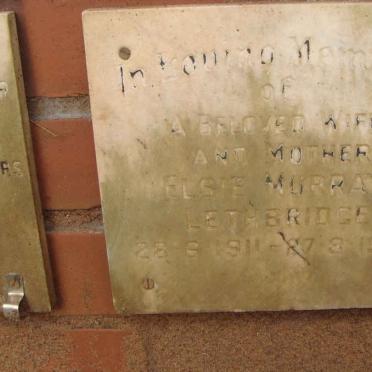 In Loving Mem
OF
A BELOVED WIFE
AND MOTHER
ELSIE MURRA
LETHBRIDGE
RS
28-6-1911-27-8-1